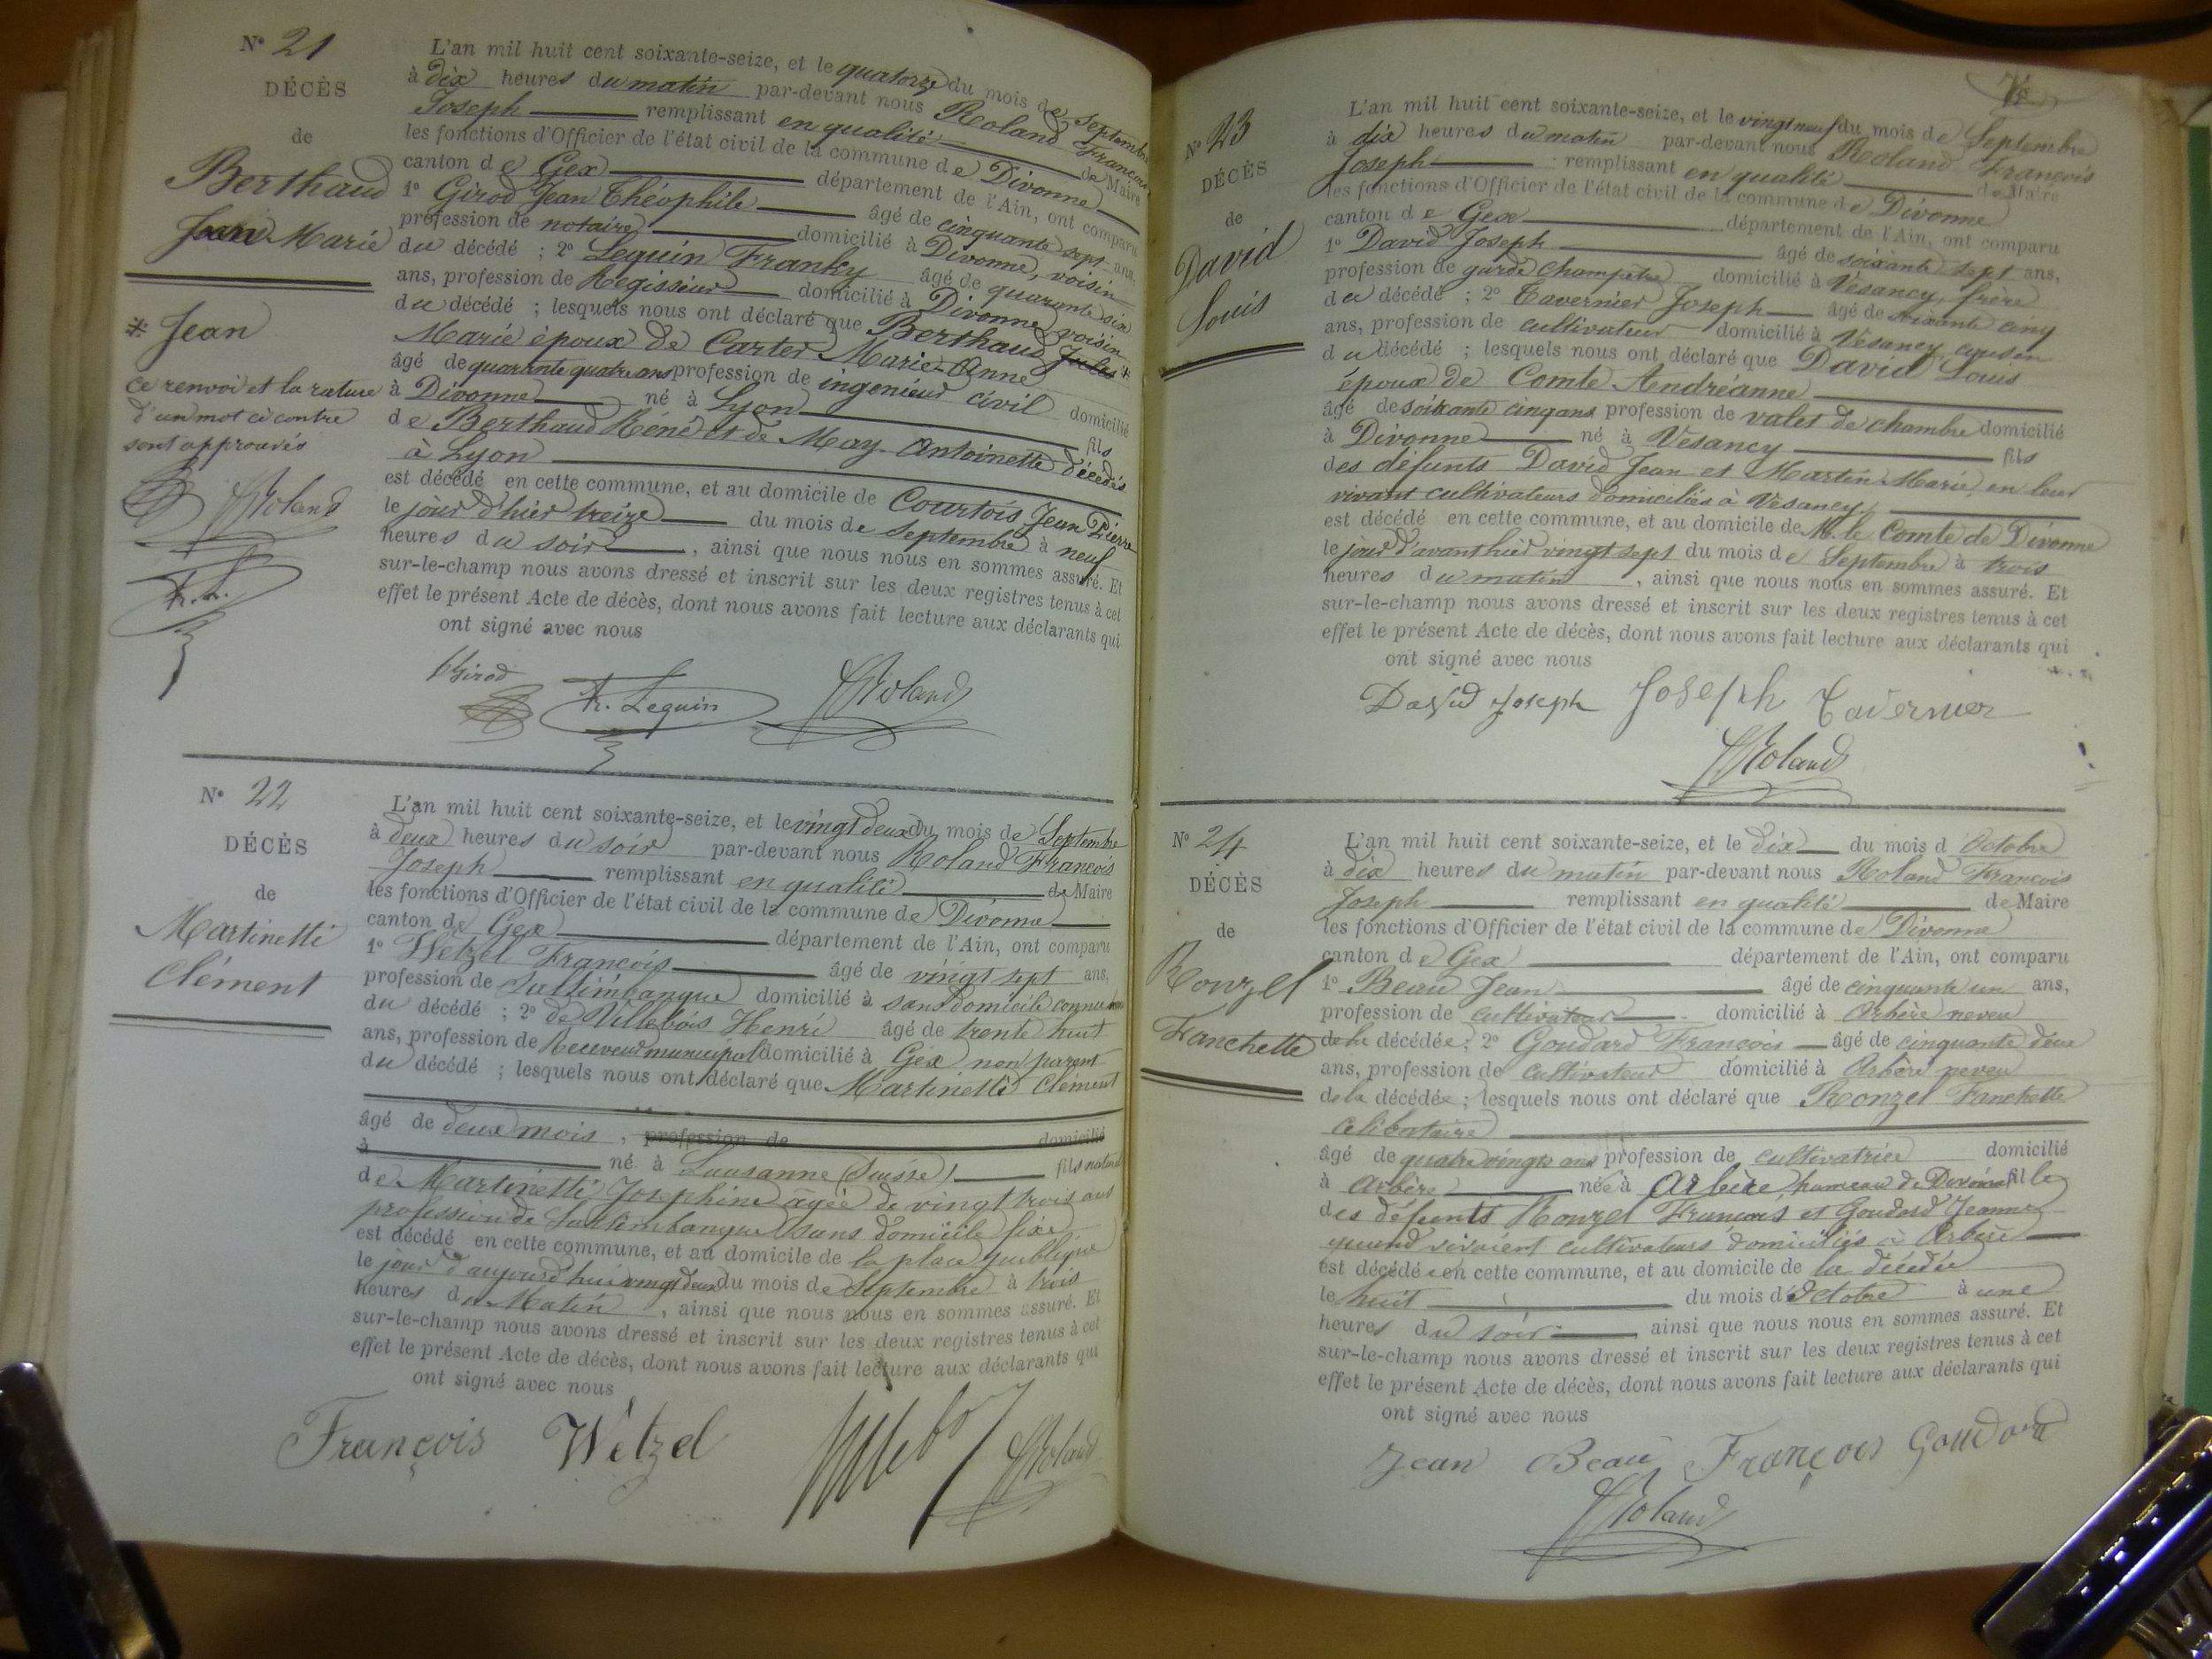 N° 21
DÉCÈS
de
Berthaud
Jean Marie
* Jean
ce renvoi et la rature
d'un mot ci contre
sont approuvés
Roland
Fr. L.
L'an mil huit cent soixante-seize, et le quatorze du mois de Septembre
à dix heures du matin par-devant nous Roland François
Joseph remplissant en qualité de Maire
les fonctions d'Officier de l'état civil de la commune de Divonne
canton de Gex département de l'Ain, ont comparu
1° Girod Jean Théophile âgé de cinquante sept ans,
profession de notaire domicilié à Divonne, voisin
du décédé ; 2° Lequin Franky âgé de quarante six
ans, profession de Régisseur domicilié à Divonne, voisin
du décédé ; lesquels nous ont déclaré que Berthaud Jules *
Marie époux de Carter Marie-Anne
âgé de quarante quatre ans profession de ingenieur civil domicilié
à Divonne né à Lyon fils
de Berthaud Réné et de May Antoinette décédés
à Lyon
est décédé en cette commune, et au domicile de Courtois Jean Pierre
le jour d'hier treize du mois de Septembre à neuf
heures du soir, ainsi que nous nous en sommes assuré. Et
sur-le-champ nous avons dressé et inscrit sur les deux registres tenus à cet
effet le présent Acte de décès, dont nous avons fait lecture aux déclarants qui
ont signé avec nous
Girod Fr. Lequin Roland
N° 22
DÉCÈS
de
Martinetti
Clément
L'an mil huit cent soixante-seize, et le vingt deux du mois de Septembre
à deux heures du soir par-devant nous Roland François
Joseph remplissant en qualité de Maire
les fonctions d'Officier de l'état civil de la commune de Divonne
canton de Gex département de l'Ain, ont comparu
1° Wetzel François âgé de vingt sept ans,
profession de Saltimbanque domicilié à sans domicile connu
du décédé ; 2° de Villebois Henri âgé de trente huit
ans, profession de Receveur municipal domicilié à Gex non parent
du décédé ; lesquels nous ont déclaré que Martinetti Clément
âgé de deux mois, profession de domicilié
à né à Lausanne (Suisse) fils naturel
de Martinetti Joséphine agée de vingt trois ans
profession de Saltimbanque sans domicile fixe
est décédé en cette commune, et au domicile de la place publique
le jour d'aujourd'hui vingt deux du mois de Septembre à trois
heures du Matin, ainsi que nous nous en sommes assuré. Et
sur-le-champ nous avons dressé et inscrit sur les deux registres tenus à cet
effet le présent Acte de décès, dont nous avons fait lecture aux déclarants qui
ont signé avec nous
François Wetzel Roland
N° 23
DÉCÈS
de
David
Louis
L'an mil huit cent soixante-seize, et le vingt neuf du mois de Septembre
à dix heures du matin par-devant nous Roland François
Joseph remplissant en qualité de Maire
les fonctions d'Officier de l'état civil de la commune de Divonne
canton de Gex département de l'Ain, ont comparu
1° David Joseph âgé de soixante sept ans,
profession de garde champêtre domicilié à Vésancy, frère
du décédé ; 2° Tavernier Joseph âgé de soixante cinq
ans, profession de cultivateur domicilié à Vésancy cousin
du décédé ; lesquels nous ont déclaré que David Louis
époux de Comte Andréanne
âgé de soixante cinq ans profession de valet de chambre domicilié
à Divonne né à Vésancy fils
des défunts David Jean et Martin Marie en leur
vivant cultivateurs domiciliés à Vésancy
est décédé en cette commune, et au domicile de M. le Comte de Divonne
le jour d'avant hier vingt sept du mois de Septembre à trois
heures du matin, ainsi que nous nous en sommes assuré. Et
sur-le-champ nous avons dressé et inscrit sur les deux registres tenus à cet
effet le présent Acte de décès, dont nous avons fait lecture aux déclarants qui
ont signé avec nous
David Joseph Joseph Tavernier
Roland
N° 24
DÉCÈS
de
Ronzel
Fanchette
L'an mil huit cent soixante-seize, et le dix du mois d'Octobre
à dix heures du matin par-devant nous Roland François
Joseph remplissant en qualité de Maire
les fonctions d'Officier de l'état civil de la commune de Divonne
canton de Gex département de l'Ain, ont comparu
1° Beau Jean âgé de cinquante un ans,
profession de cultivateur domicilié à Arbère neveu
de la décédée ; 2° Goudard François âgé de cinquante deux
ans, profession de cultivateur domicilié à Arbère neveu
de la décédée ; lesquels nous ont déclaré que Ronzel Fanchette
célibataire
âgé de quatre vingts ans profession de cultivatrice domicilié
à Arbère née à Arbère hameau de Divonne fille
des défunts Ronzel François et Goudard Jeanne
quand vivaient cultivateurs domiciliés à Arbère
est décédée en cette commune, et au domicile de la décédée
le huit du mois d'Octobre à une
heures du soir ainsi que nous nous en sommes assuré. Et
sur-le-champ nous avons dressé et inscrit sur les deux registres tenus à cet
effet le présent Acte de décès, dont nous avons fait lecture aux déclarants qui
ont signé avec nous
Jean Beau François Goudard
Roland